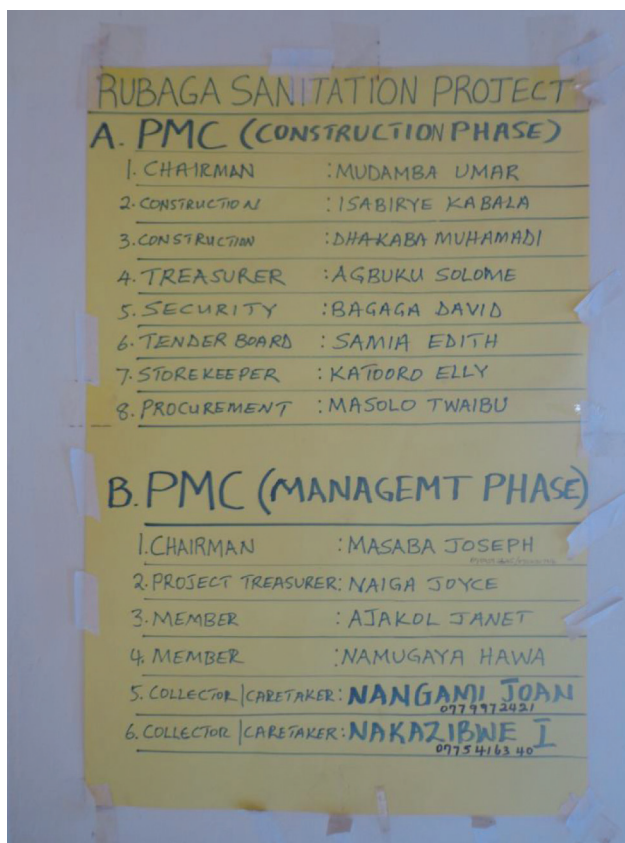 RUBAGA SANITATION PROJECT
A. PMC (CONSTRUCTION PHASE)
1. CHAIRMAN : MUDAMBA UMAR
2. CONSTRUCTION : ISABIRYE KABALA
3. CONSTRUCTION : DHAKABA MUHAMADI
4. TREASURER : AGBUKU SOLOME
5. SECURITY : BAGAGA DAVID
6. TENDER BOARD : SAMIA EDITH
7. STOREKEEPER : KATOORO ELLY
8. PROCUREMENT : MASOLO TWAIBU
B. PMC (MANAGEMT PHASE)
1. CHAIRMAN : MASABA JOSEPH
2. PROJECT TREASURER: NAIGA JOYCE
3. MEMBER : AJAKOL JANET
4. MEMBER : NAMUGAYA HAWA
5. COLLECTOR | CARETAKER: NANGAMI JOAN
0779972421
6. COLLECTOR | CARETAKER: NAKAZIBWE I
0775416340